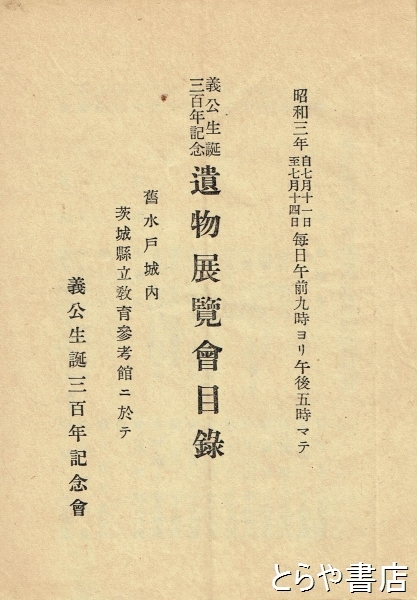 昭和三年自七月十一日至七月十四日每日午前九時ヨリ午後五時マテ
義公生誕三百年記念遺物展覽會目錄
舊水戶城內
茨城縣立教育參考館ニ於テ
義公生誕三百年記念會
とらや書店